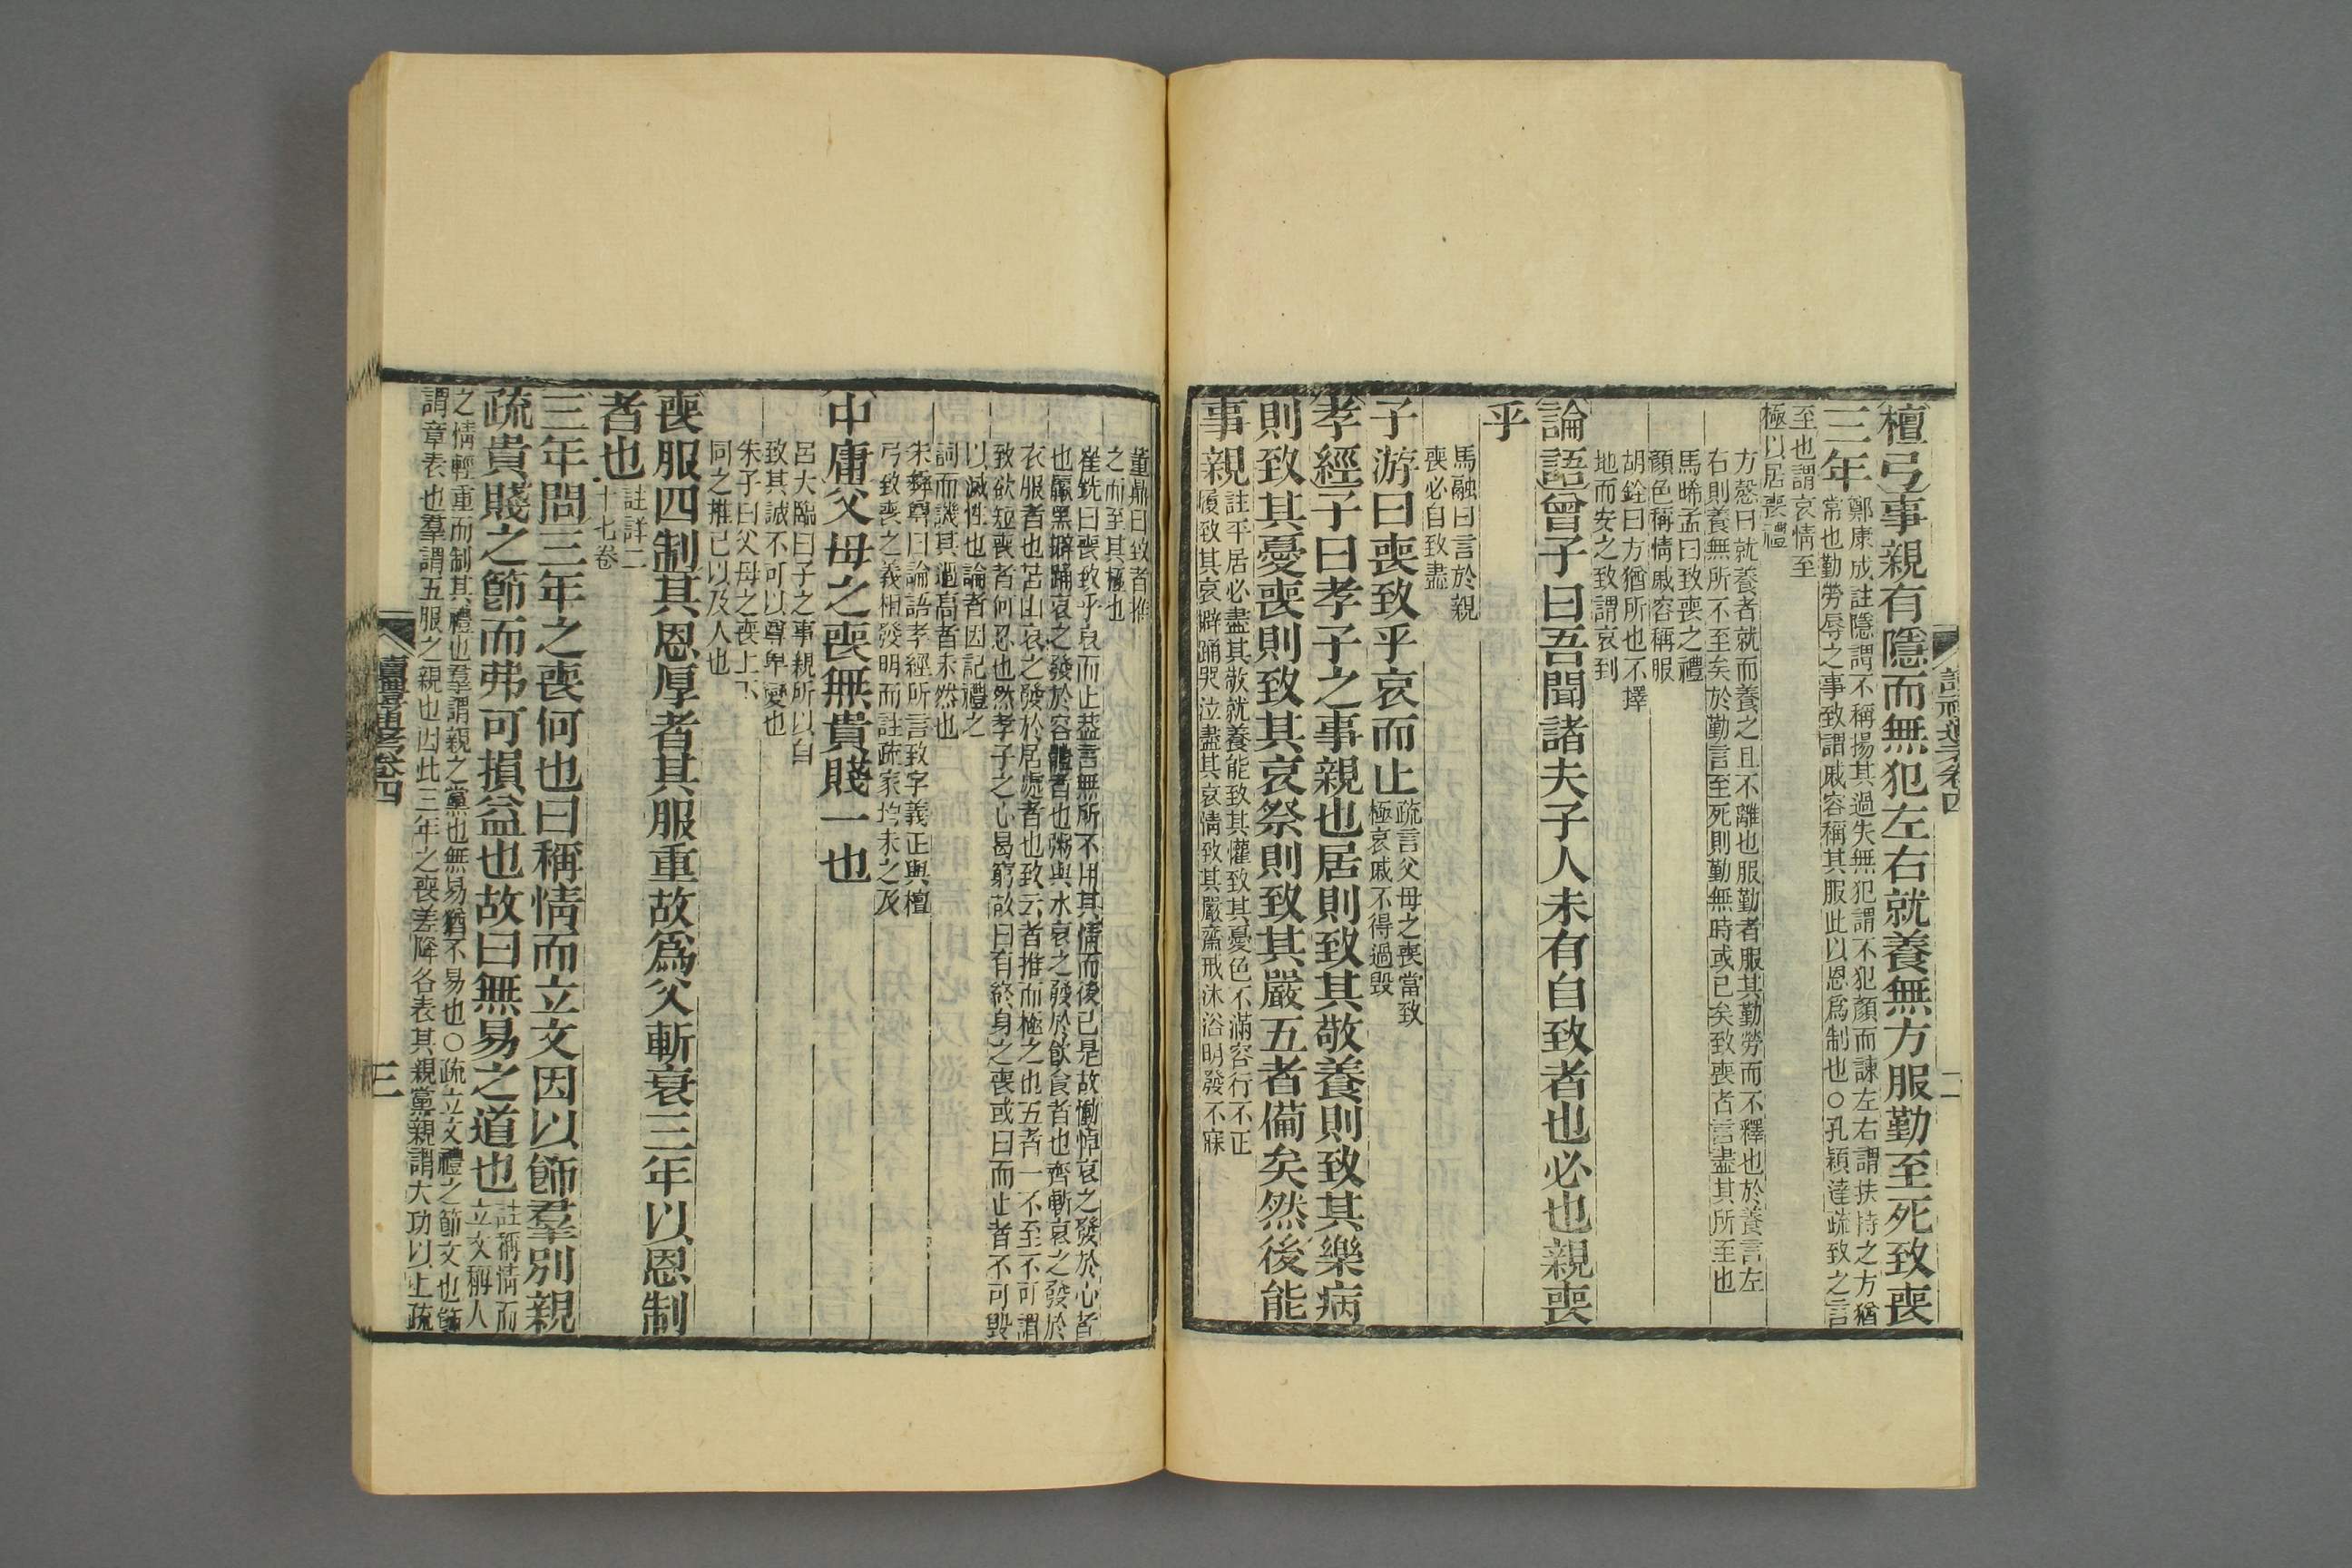 檀弓事親有隱而無犯左右就養無方服勤至死致喪
三年
鄭康成註隱謂不稱揚其過失無犯謂不犯顏而諫左右謂扶持之方猶
常也勤勞辱之事致謂戚容稱其服此以恩爲制也○孔穎達疏致之言
至也謂哀情至
極以居喪禮
方慤曰就養者就而養之且不離也服勤者服其勤勞而不釋也於養言左
右則養無所不至矣於勤言至死則勤無時或已矣致喪者言盡其所至也
馬晞孟曰致喪之禮
顏色稱情戚容稱服
胡銓曰方猶所也不擇
地而安之致謂哀到
論語曾子曰吾聞諸夫子人未有自致者也必也親喪
乎
馬融曰言於親
喪必自致盡
子游曰喪致乎哀而止
疏言父母之喪當致
極哀戚不得過毀
孝經子曰孝子之事親也居則致其敬養則致其樂病
則致其憂喪則致其哀祭則致其嚴五者備矣然後能
事親
註平居必盡其敬就養能致其懽致其憂色不滿容行不正
履致其哀擗踊哭泣盡其哀情致其嚴齋戒沐浴明發不寐
董鼎曰致者推
之而至其極也
崔銑曰喪致乎哀而止葢言無所不用其情而後已是故慟悼哀之發於心者
也羸黑擗踊哀之發於容體者也粥與水哀之發於飲食者也齊斬哀之發於
衣服者也苫山哀之發於居處者也致云者推而極之也五者一不至不可謂
致欲短喪者何忍也然孝子之心曷窮故曰有終身之喪或曰而止者不可毀
以滅性也論者因記禮之
詞而譏其過高者未然也
朱彝尊曰論語孝經所言致字義正與檀
弓致喪之義相發明而註疏家均未之及
中庸父母之喪無貴賤一也
呂大臨曰子之事親所以自
致其誠不可以尊卑變也
朱子曰父母之喪上下
同之推己以及人也
喪服四制其恩厚者其服重故爲父斬衰三年以恩制
者也
註詳二
十七卷
三年問三年之喪何也曰稱情而立文因以飾羣別親
疏貴賤之節而弗可損益也故曰無易之道也
註稱情而
立文稱人
之情輕重而制其禮也羣謂親之黨也無易猶不易也○疏立文禮之節文也飾
謂章表也羣謂五服之親也因此三年之喪差降各表其親黨親謂大功以上疏
讀禮通考卷四
三